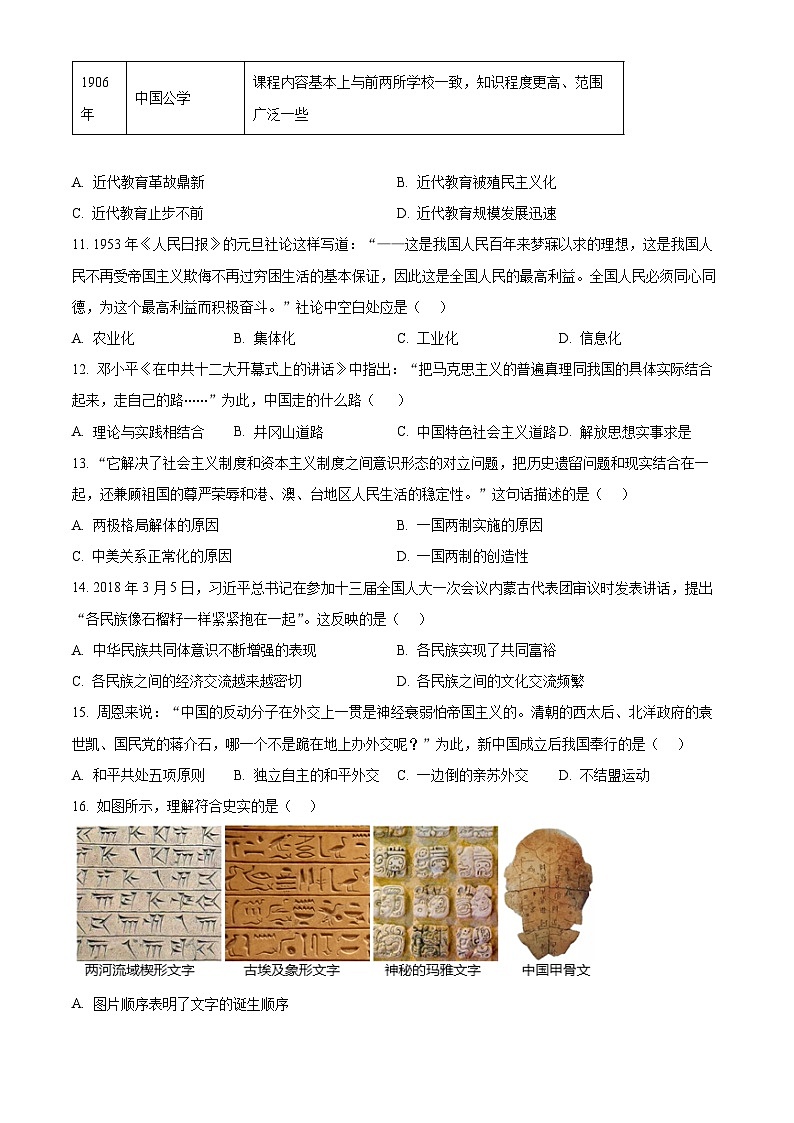 1906
年
中国公学
课程内容基本上与前两所学校一致，知识程度更高、范围
广泛一些
A. 近代教育革故鼎新 B. 近代教育被殖民主义化
C. 近代教育止步不前 D. 近代教育规模发展迅速
11. 1953 年《人民日报》的元旦社论这样写道：“——这是我国人民百年来梦寐以求的理想，这是我国人
民不再受帝国主义欺侮不再过穷困生活的基本保证，因此这是全国人民的最高利益。全国人民必须同心同
德，为这个最高利益而积极奋斗。”社论中空白处应是（ ）
A. 农业化 B. 集体化 C. 工业化 D. 信息化
12. 邓小平《在中共十二大开幕式上的讲话》中指出：“把马克思主义的普遍真理同我国的具体实际结合
起来，走自己的路……”为此，中国走的什么路（ ）
A. 理论与实践相结合 B. 井冈山道路 C. 中国特色社会主义道路 D. 解放思想实事求是
13. “它解决了社会主义制度和资本主义制度之间意识形态的对立问题，把历史遗留问题和现实结合在一
起，还兼顾祖国的尊严荣辱和港、澳、台地区人民生活的稳定性。”这句话描述的是（ ）
A. 两极格局解体的原因 B. 一国两制实施的原因
C. 中美关系正常化的原因 D. 一国两制的创造性
14. 2018 年 3 月 5 日，习近平总书记在参加十三届全国人大一次会议内蒙古代表团审议时发表讲话，提出
“各民族像石榴籽一样紧紧抱在一起”。这反映的是（ ）
A. 中华民族共同体意识不断增强的表现 B. 各民族实现了共同富裕
C. 各民族之间的经济交流越来越密切 D. 各民族之间的文化交流频繁
15. 周恩来说：“中国的反动分子在外交上一贯是神经衰弱怕帝国主义的。清朝的西太后、北洋政府的袁
世凯、国民党的蒋介石，哪一个不是跪在地上办外交呢？”为此，新中国成立后我国奉行的是（ ）
A. 和平共处五项原则 B. 独立自主的和平外交 C. 一边倒的亲苏外交 D. 不结盟运动
16. 如图所示，理解符合史实的是（ ）
两河流域楔形文字 古埃及象形文字 神秘的玛雅文字 中国甲骨文
A. 图片顺序表明了文字的诞生顺序